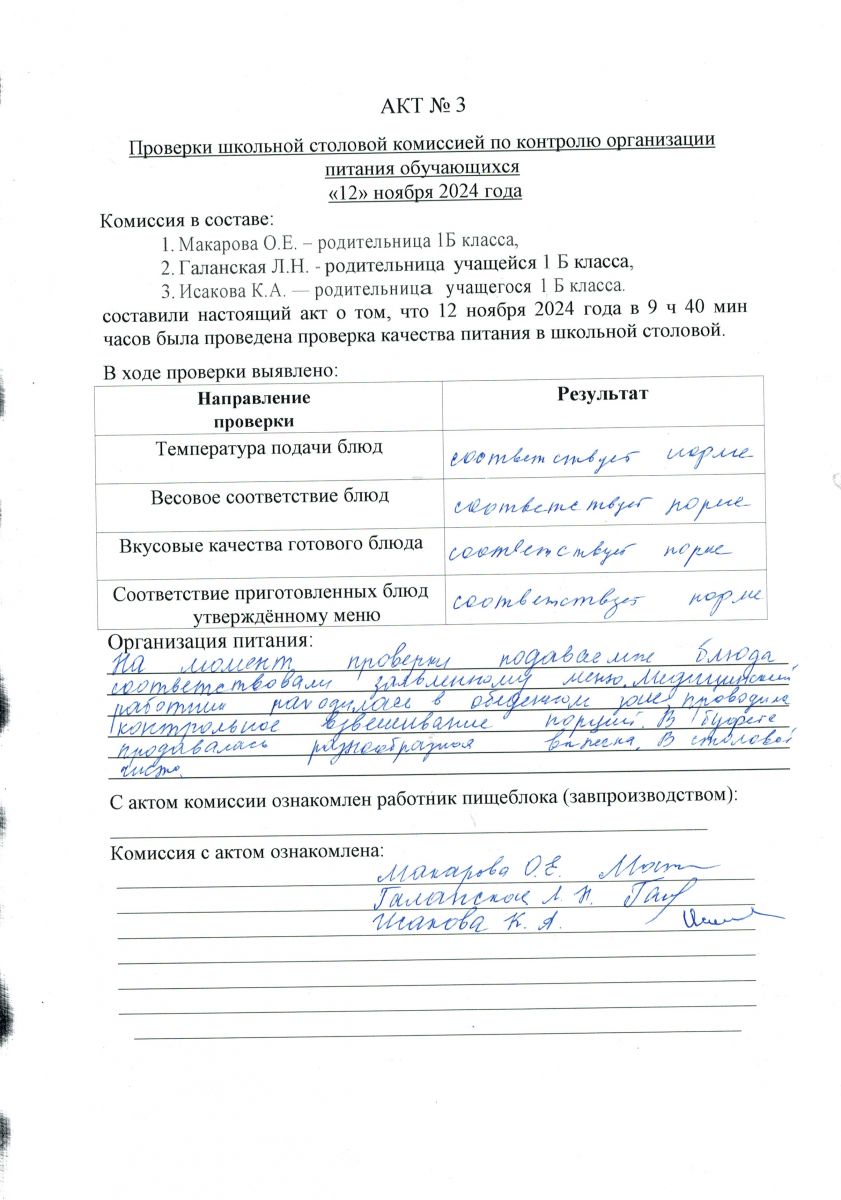 АКТ № 3
Проверки школьной столовой комиссией по контролю организации
питания обучающихся
«12» ноября 2024 года
Комиссия в составе:
1. Макарова О.Е. – родительница 1Б класса,
2. Галанская Л.Н. - родительница учащейся 1 Б класса,
3. Исакова К.А. — родительница учащегося 1 Б класса.
составили настоящий акт о том, что 12 ноября 2024 года в 9 ч 40 мин
часов была проведена проверка качества питания в школьной столовой.
В ходе проверки выявлено:
Направление
проверки
Результат
Температура подачи блюд
соответствует норме
Весовое соответствие блюд
соответствует норме
Вкусовые качества готового блюда
соответствует норме
Соответствие приготовленных блюд
утверждённому меню
соответствует норме
Организация питания:
На момент проверки подаваемые блюда
соответствовали заявленному меню. Медицинский
работник находилась в обеденном зале, проводила
контрольное взвешивание порций. В буфете
продавалась разнообразная выпечка. В столовой
чисто.
С актом комиссии ознакомлен работник пищеблока (завпроизводством):
Комиссия с актом ознакомлена:
Макарова О.Е.
Галанская Л. Н.
Исакова К. А.